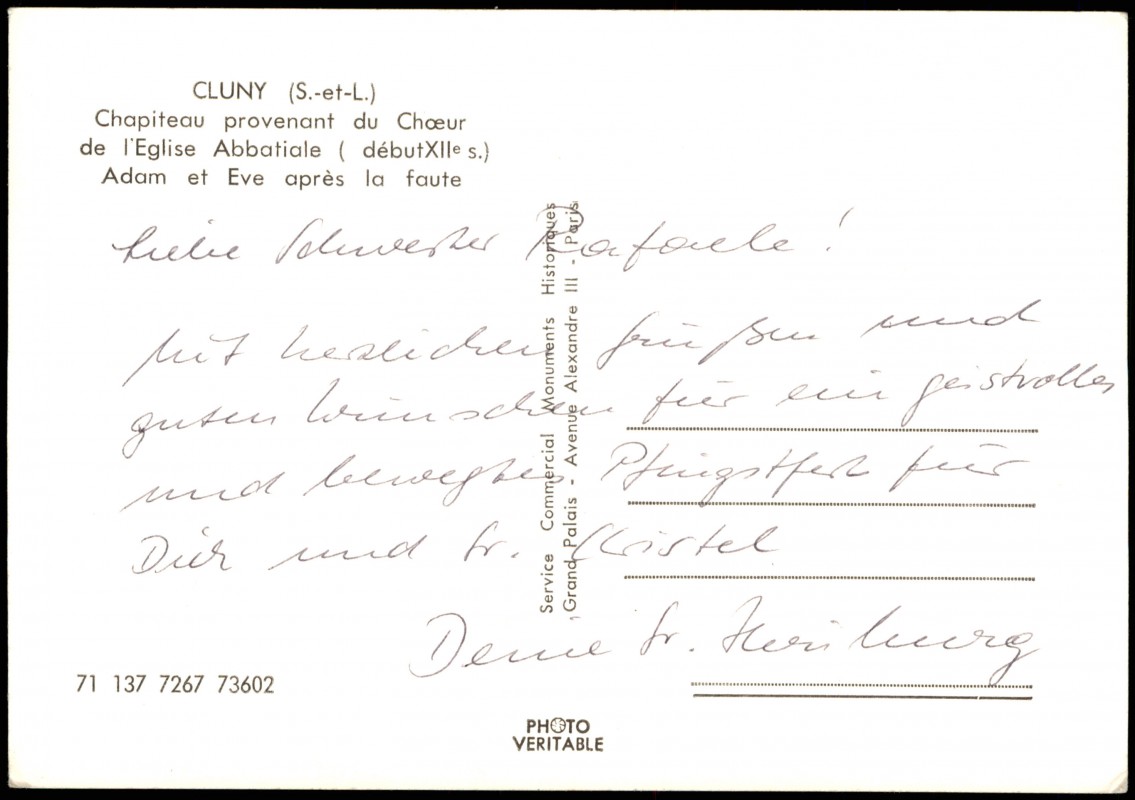 CLUNY (S.-et-L.)
Chapiteau provenant du Chœur
de l'Eglise Abbatiale ( débutXIIe s.)
Adam et Eve après la faute
Liebe Schwester Rafaele!
Mit herzlichen Grüßen und
guten Wünschen für ein geistvolles
und bewegtes Pfingstfest für
Dich und Sr. Christel
Deine Sr.
Service Commercial Monuments Historiques
Grand Palais - Avenue Alexandre III - Paris
71 137 7267 73602
PHOTO
VERITABLE